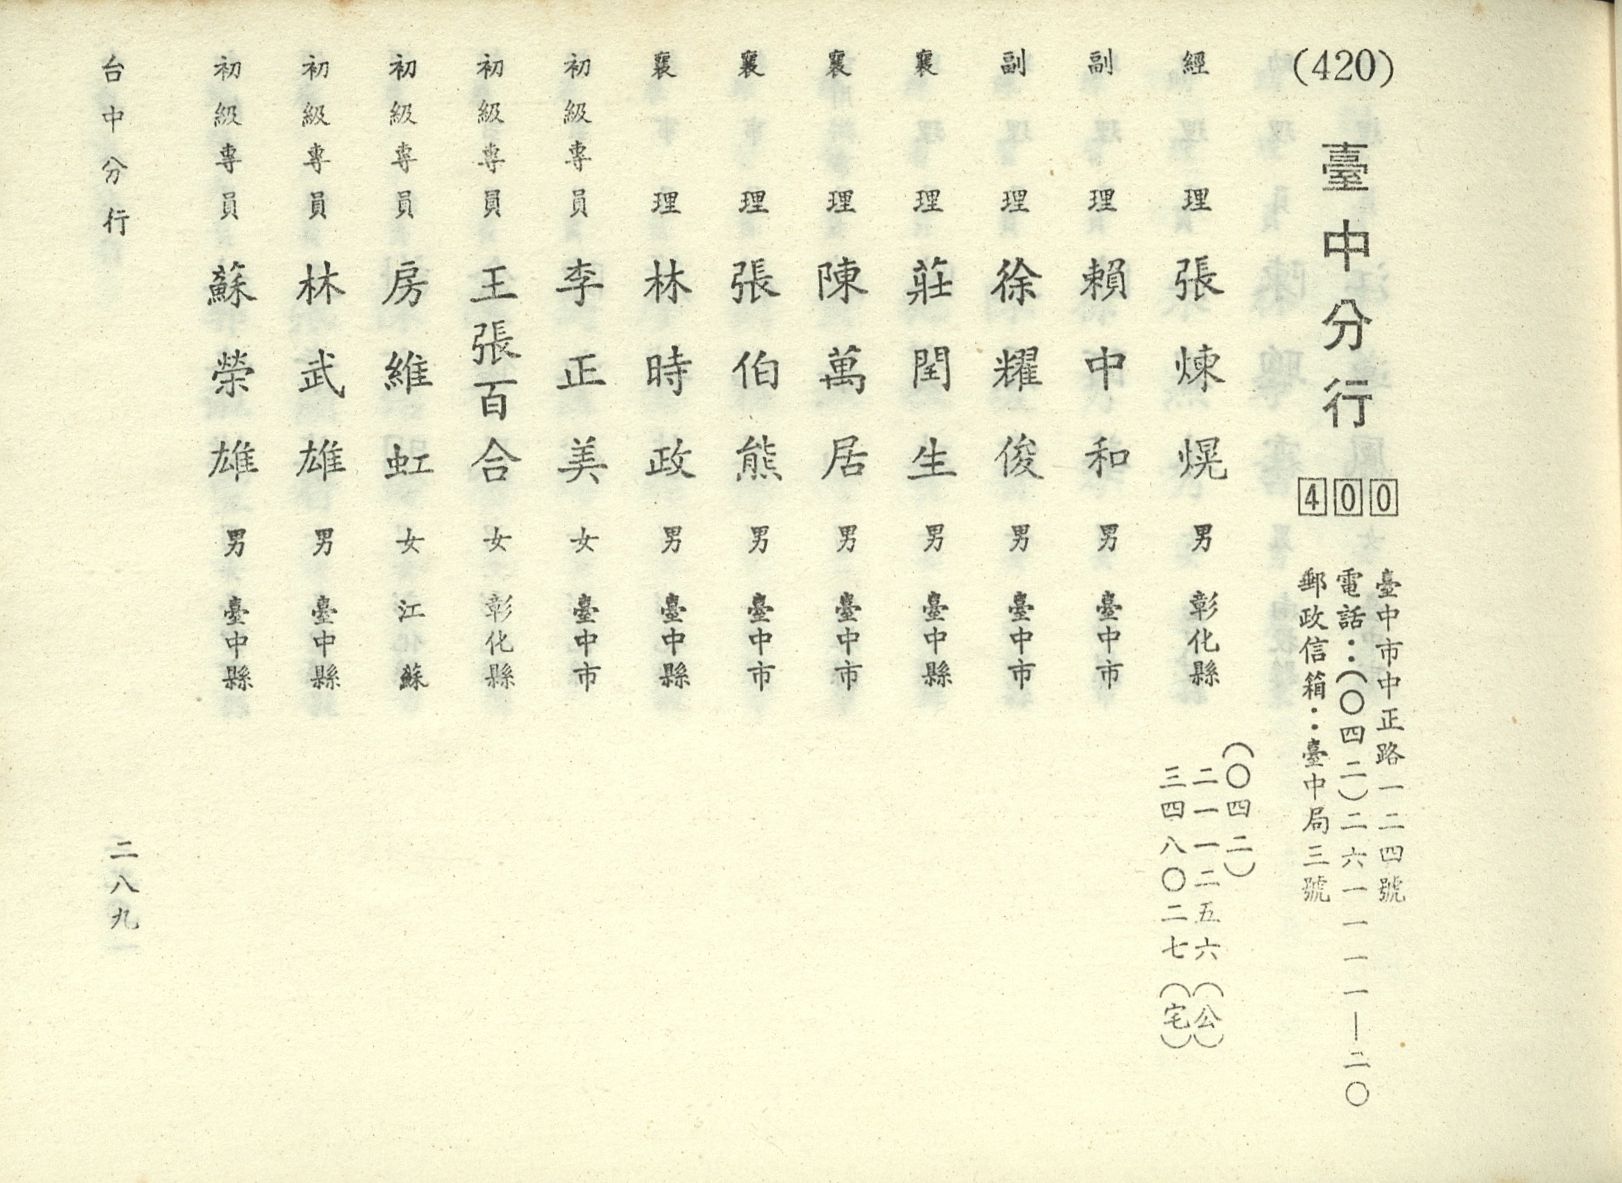 (420)
臺中分行
400
臺中市中正路一二四號
電話：(〇四二)二六一一一一—二〇
郵政信箱：臺中局三號
經理 張煉熀 男 彰化縣
(〇四二)
二一一二五六(公)
三四八〇二七(宅)
副理 賴中和 男 臺中市
副理 徐耀俊 男 臺中市
襄理 莊閏生 男 臺中縣
襄理 陳萬居 男 臺中市
襄理 張伯熊 男 臺中市
襄理 林時政 男 臺中縣
初級專員 李正美 女 臺中市
初級專員 王張百合 女 彰化縣
初級專員 房維虹 女 江蘇
初級專員 林武雄 男 臺中縣
初級專員 蘇榮雄 男 臺中縣
台中分行
二八九